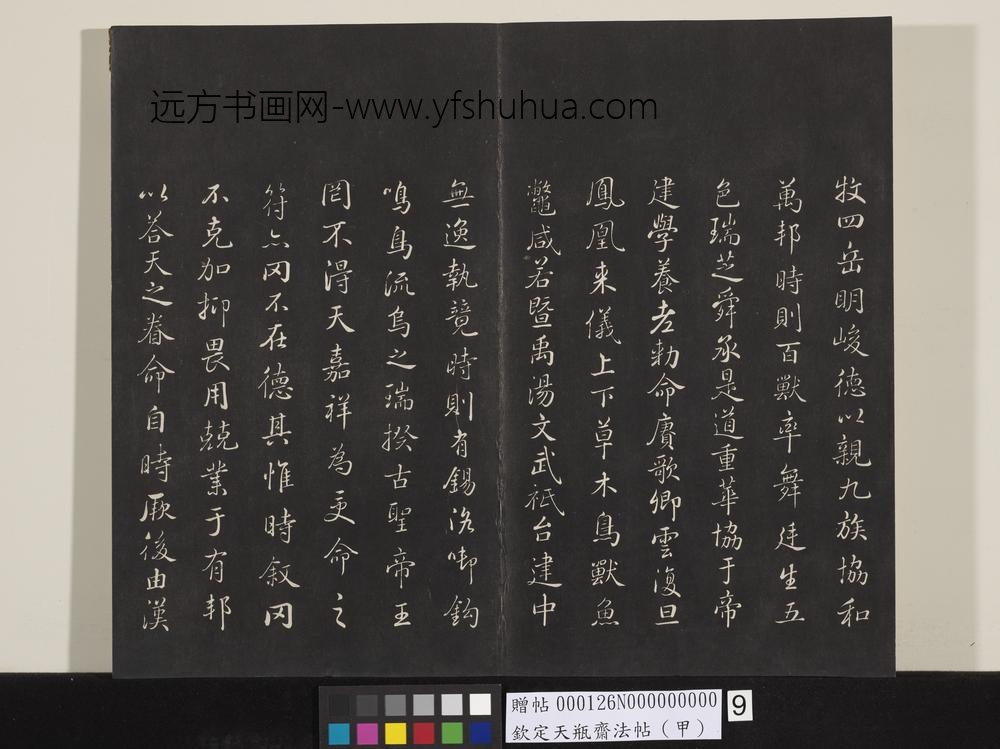 远方书画网-www.yfshuhua.com
牧四岳明峻德以親九族協和
萬邦時則百獸率舞廷生五
色瑞芝舜承是道重華協于帝
建學養老勅命賡歌卿雲復旦
鳳凰来儀上下草木鳥獸魚
鼈咸若暨禹湯文武祇台建中
無逸執競時則有錫洛啣鈎
鳴鳥流烏之瑞揆古聖帝王
罔不淂天嘉祥為更命之
符亦罔不在德其惟時叙罔
不克加抑畏用兢業于有邦
以荅天之眷命自時厥後由漢
贈帖 000126N000000000
欽定天瓶齋法帖（甲）
9